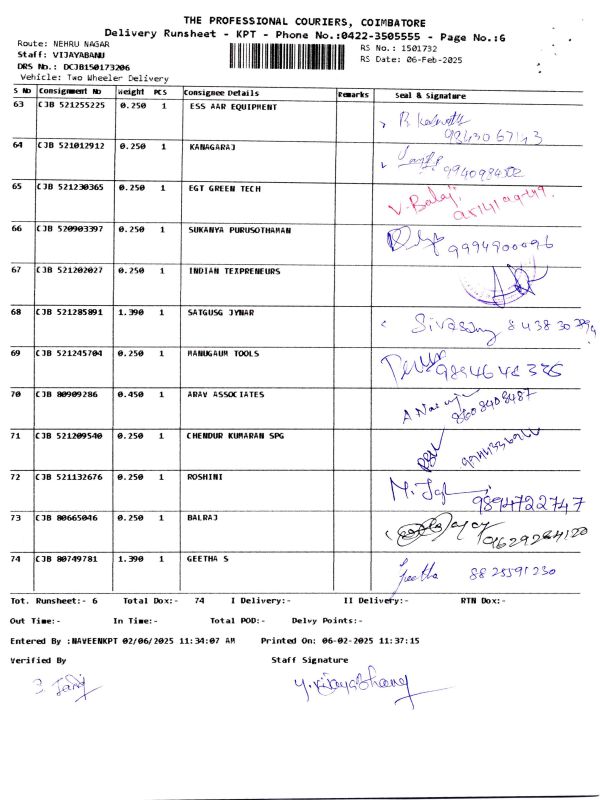 THE PROFESSIONAL COURIERS, COIMBATORE
Delivery Runsheet - KPT - Phone No.:0422-3505555 - Page No.:6
Route: NEHRU NAGAR
RS No.: 1501732
Staff: VIJAYABANU
RS Date: 06-Feb-2025
DRS No.: DCJB150173206
Vehicle: Two Wheeler Delivery
S No Consignment No Weight PCS Consignee Details Remarks Seal & Signature
63 CJB 521255225 0.250 1 ESS AAR EQUIPMENT
64 CJB 521012912 0.250 1 KANAGARAJ
65 CJB 521230365 0.250 1 EGT GREEN TECH V-Balaji
66 CJB 520903397 0.250 1 SUKANYA PURUSOTHAMAN 9994900096
67 CJB 521202027 0.250 1 INDIAN TEXPRENEURS
68 CJB 521285891 1.390 1 SATGUSG JYNAR
69 CJB 521245704 0.250 1 MANUGAUM TOOLS
70 CJB 80909286 0.450 1 ARAV ASSOCIATES 8608408487
71 CJB 521209540 0.250 1 CHENDUR KUMARAN SPG
72 CJB 521132676 0.250 1 ROSHINI 9894722747
73 CJB 80665046 0.250 1 BALRAJ
74 CJB 80749781 1.390 1 GEETHA S Geetha 8825591230
Tot. Runsheet:- 6 Total Dox:- 74 I Delivery:- II Delivery:- RTN Dox:-
Out Time:- In Time:- Total POD:- Delvy Points:-
Entered By :NAVEENKPT 02/06/2025 11:34:07 AM Printed On: 06-02-2025 11:37:15
Verified By Staff Signature